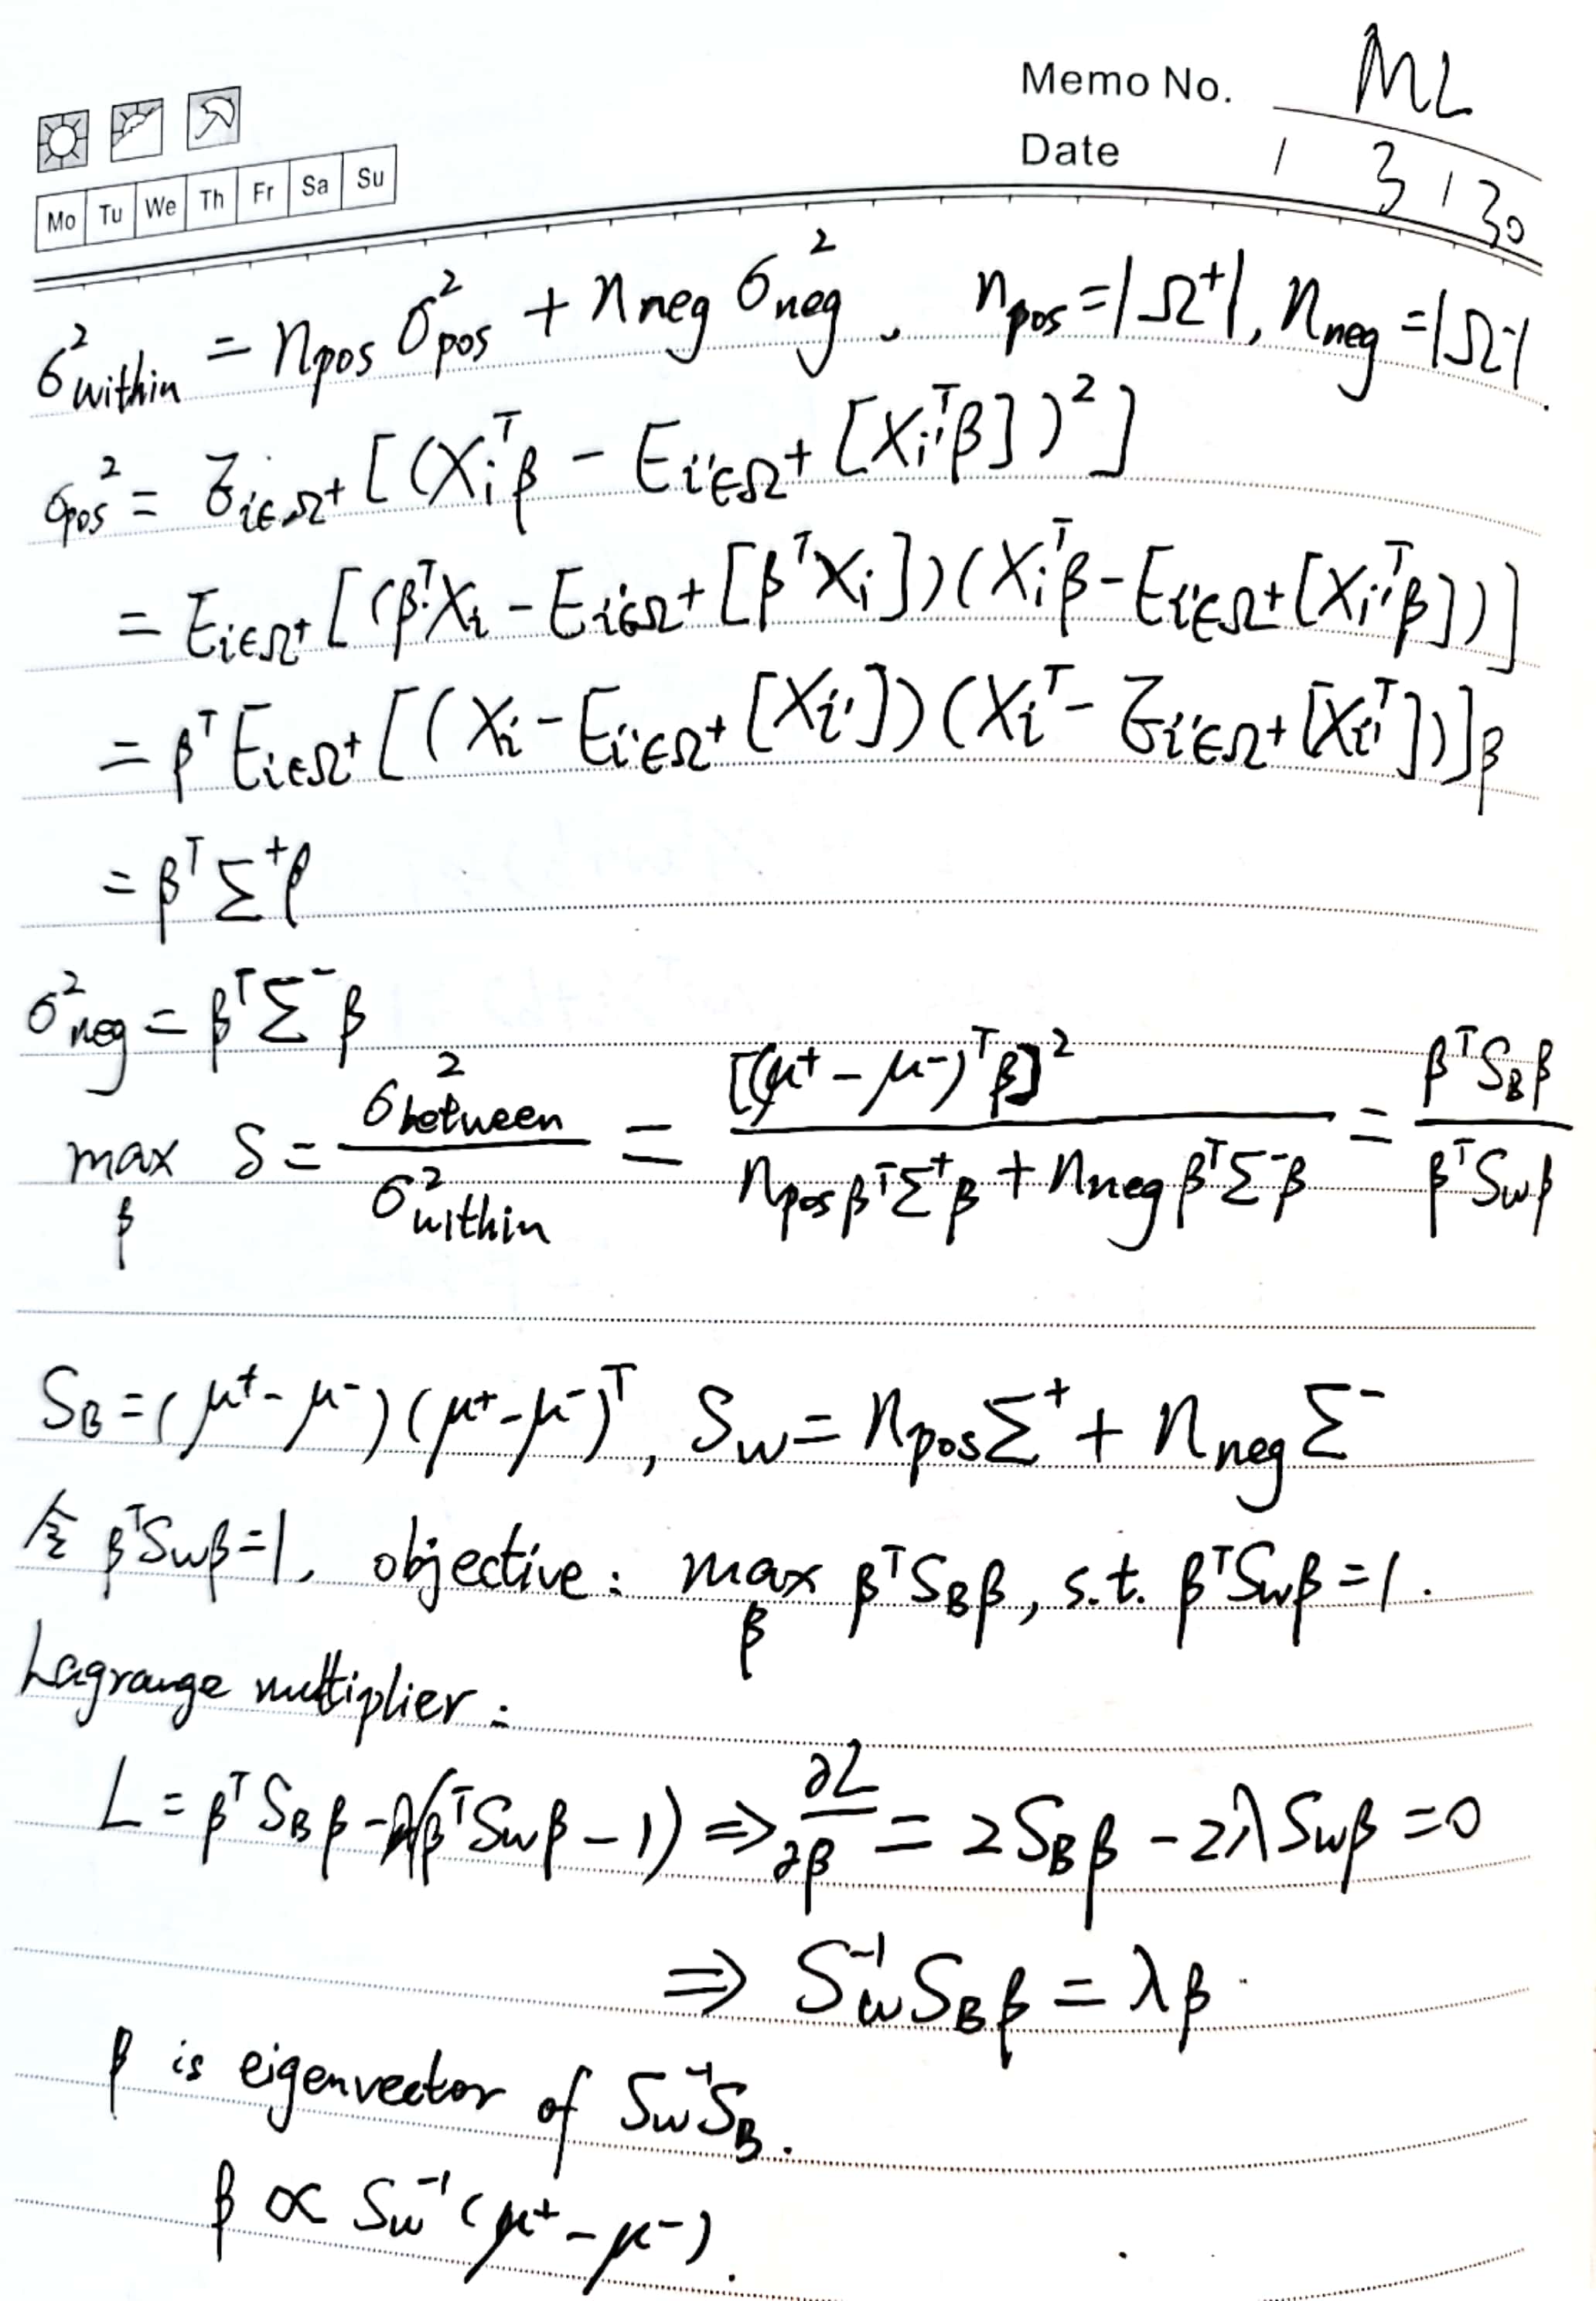 Memo No. ML
Date / 3 / 30
Mo Tu We Th Fr Sa Su
σ²within = npos σ²pos + nneg σ²neg. npos = |Ω⁺|, nneg = |Ω⁻|.
σpos² = E_{i∈Ω⁺}[(Xᵢᵀβ − E_{i'∈Ω⁺}[Xᵢ'ᵀβ])²]
= E_{i∈Ω⁺}[(βᵀXᵢ − E_{i'∈Ω⁺}[βᵀXᵢ])(Xᵢᵀβ − E_{i'∈Ω⁺}[Xᵢ'ᵀβ])]
= βᵀE_{i∈Ω⁺}[(Xᵢ − E_{i'∈Ω⁺}[Xᵢ'])(Xᵢᵀ − E_{i'∈Ω⁺}[Xᵢ'ᵀ])]β
= βᵀΣ⁺β
σ²neg = βᵀΣ⁻β
max_β S = σ²between / σ²within = [(μ⁺ − μ⁻)ᵀβ]² / (npos βᵀΣ⁺β + nneg βᵀΣ⁻β) = βᵀS_Bβ / βᵀS_wβ
S_B = (μ⁺ − μ⁻)(μ⁺ − μ⁻)ᵀ, S_w = npos Σ⁺ + nneg Σ⁻
令 βᵀS_wβ = 1. objective: max_β βᵀS_Bβ, s.t. βᵀS_wβ = 1.
Lagrange multiplier:
L = βᵀS_Bβ − λ(βᵀS_wβ − 1) ⇒ ∂L/∂β = 2S_Bβ − 2λS_wβ = 0
⇒ S_w⁻¹S_Bβ = λβ.
β is eigenvector of S_w⁻¹S_B.
β ∝ S_w⁻¹(μ⁺ − μ⁻).